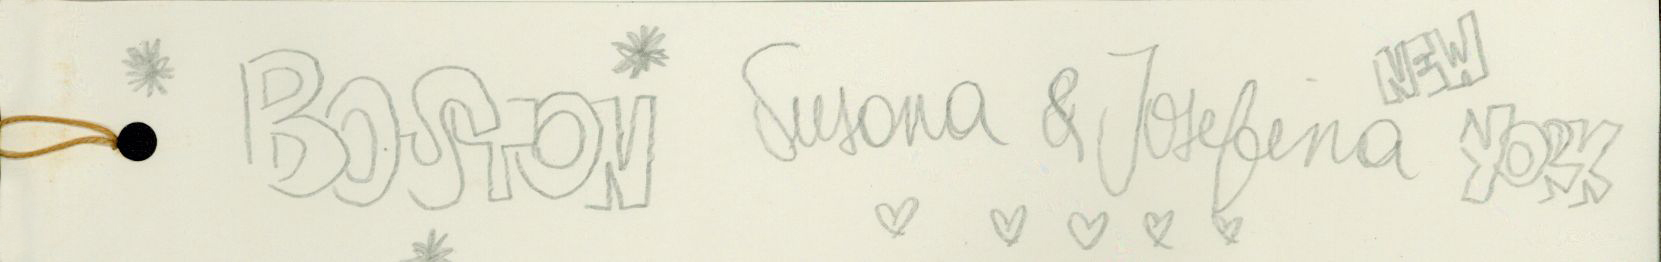 BOSTON
Susana & Josefina
NEW
YORK